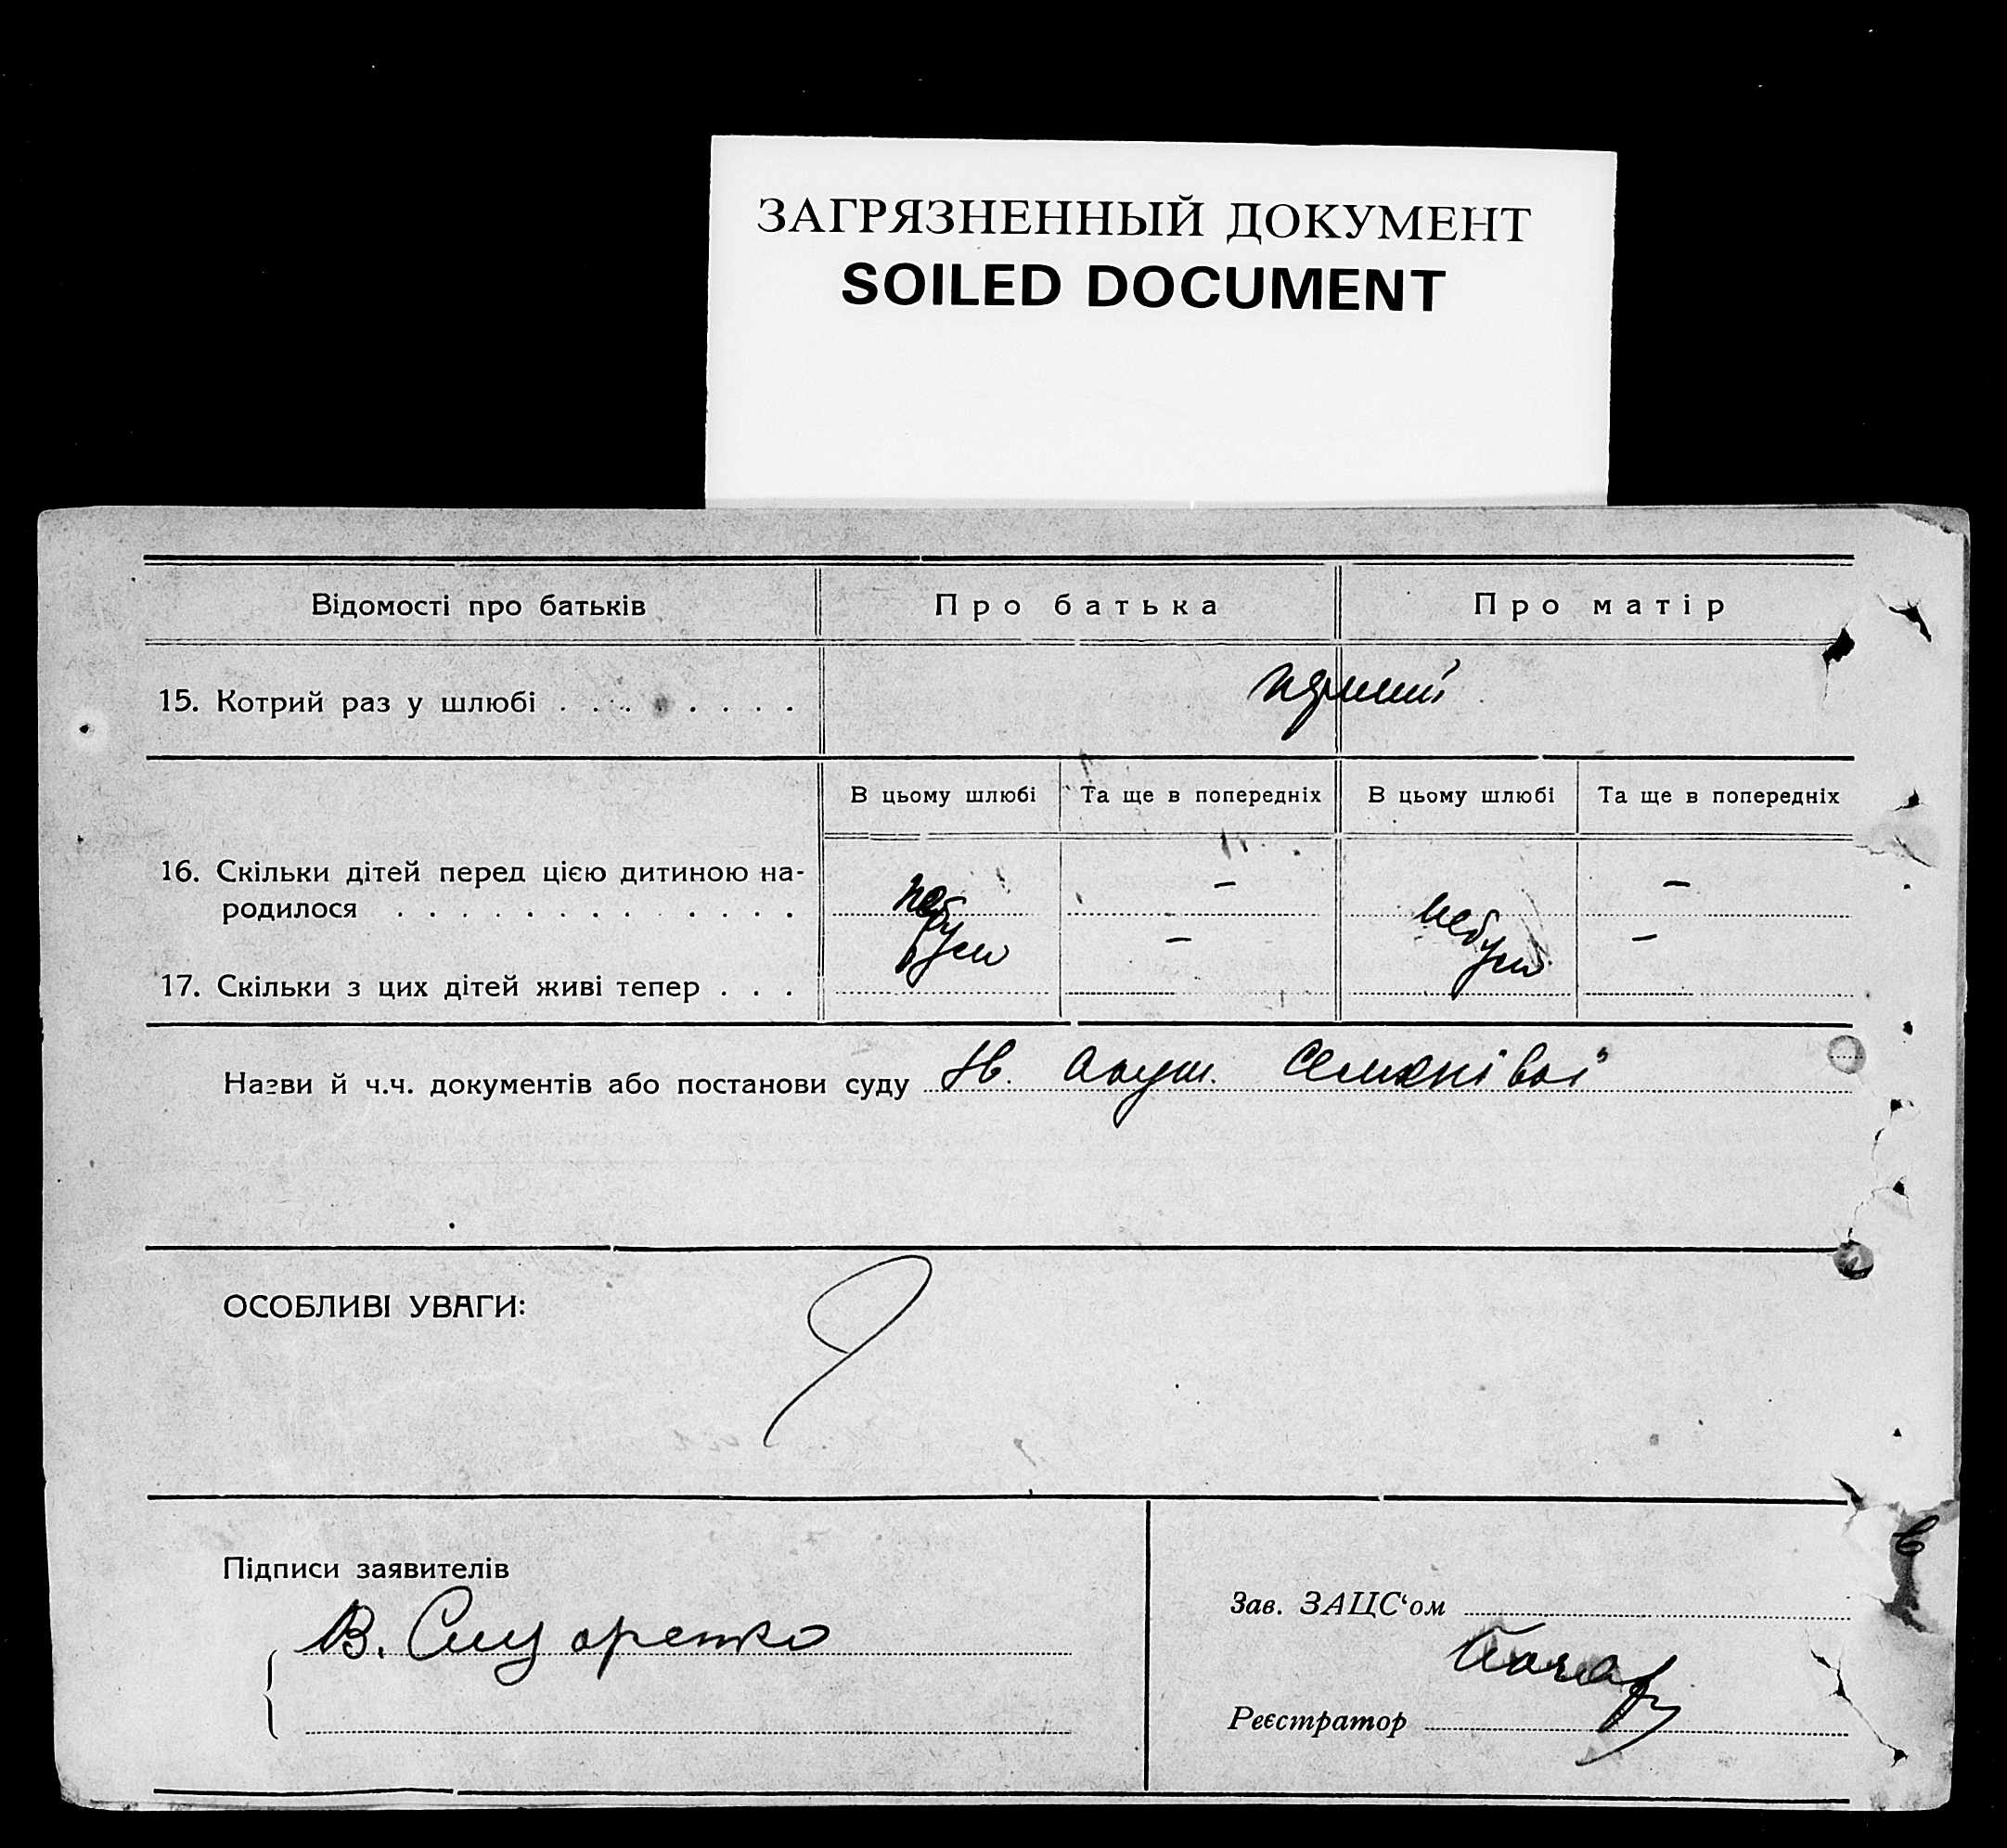 ЗАГРЯЗНЕННЫЙ ДОКУМЕНТ
SOILED DOCUMENT
Відомості про батьків Про батька Про матір
15. Котрий раз у шлюбі
В цьому шлюбі Та ще в попередніх В цьому шлюбі Та ще в попередніх
16. Скільки дітей перед цією дитиною на-
родилося — —
17. Скільки з цих дітей живі тепер — —
Назви й ч.ч. документів або постанови суду
ОСОБЛИВІ УВАГИ:
Підписи заявителів
Зав. ЗАЦС‘ом
В.
Реєстратор